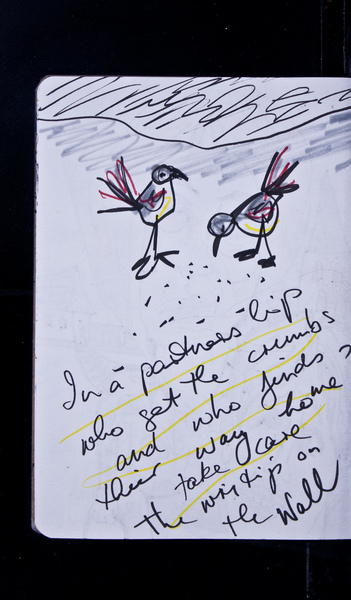 In a partnership
who get the crumbs
and who finds
their way home
take care
the writip on
the Wall